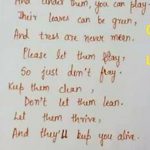 And under them, you can play.
Their leaves can be green,
And trees are never mean.
Please let them stay;
So just don't fray.
Keep them clean,
Don't let them lean.
Let them thrive,
And they'll keep you alive.